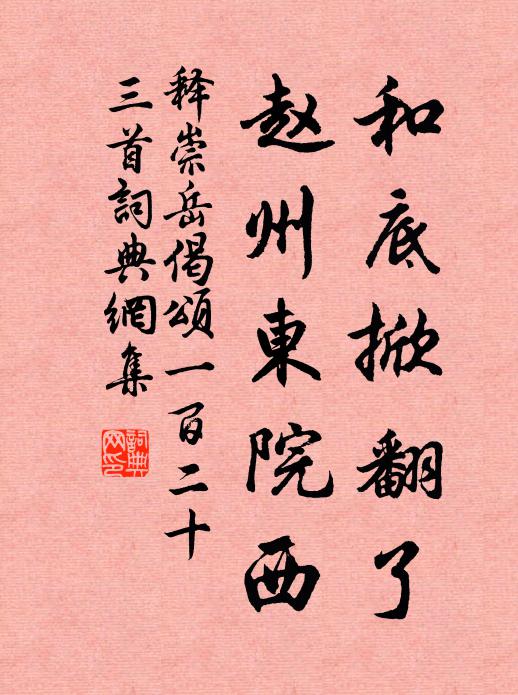 和底掀翻了
赵州東院西
释崇岳偈頌一百二十
三首詞典網集
詞典網印